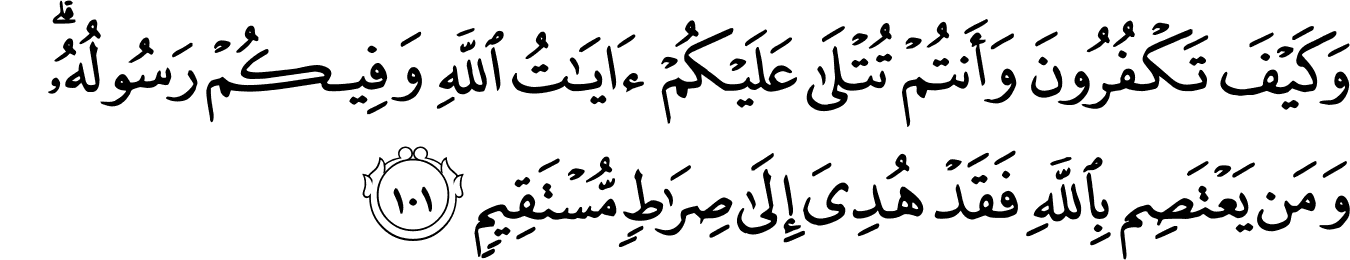 وَكَيْفَ تَكْفُرُونَ وَأَنتُمْ تُتْلَىٰ عَلَيْكُمْ ءَايَـٰتُ ٱللَّهِ وَفِيكُمْ رَسُولُهُۥ ۗ
وَمَن يَعْتَصِم بِٱللَّهِ فَقَدْ هُدِىَ إِلَىٰ صِرَٰطٍ مُّسْتَقِيمٍ ١٠١